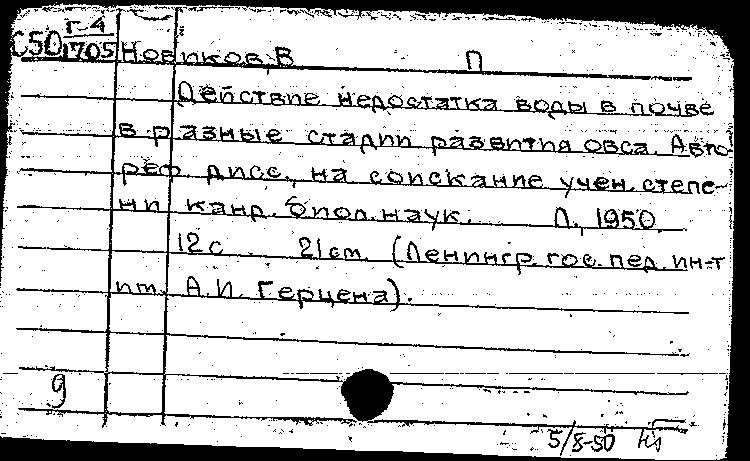 Г-4
С50 1705 Новиков, В П
Действие недостатка воды в почве
в разные стадии развития овса. Авто-
реф дисс., на соискание учен. степе-
ни канд. биол. наук. Л., 1950.
12с 21см. (Ленингр. гос. пед. ин-т
им. А.И. Герцена).
9
5/8-50